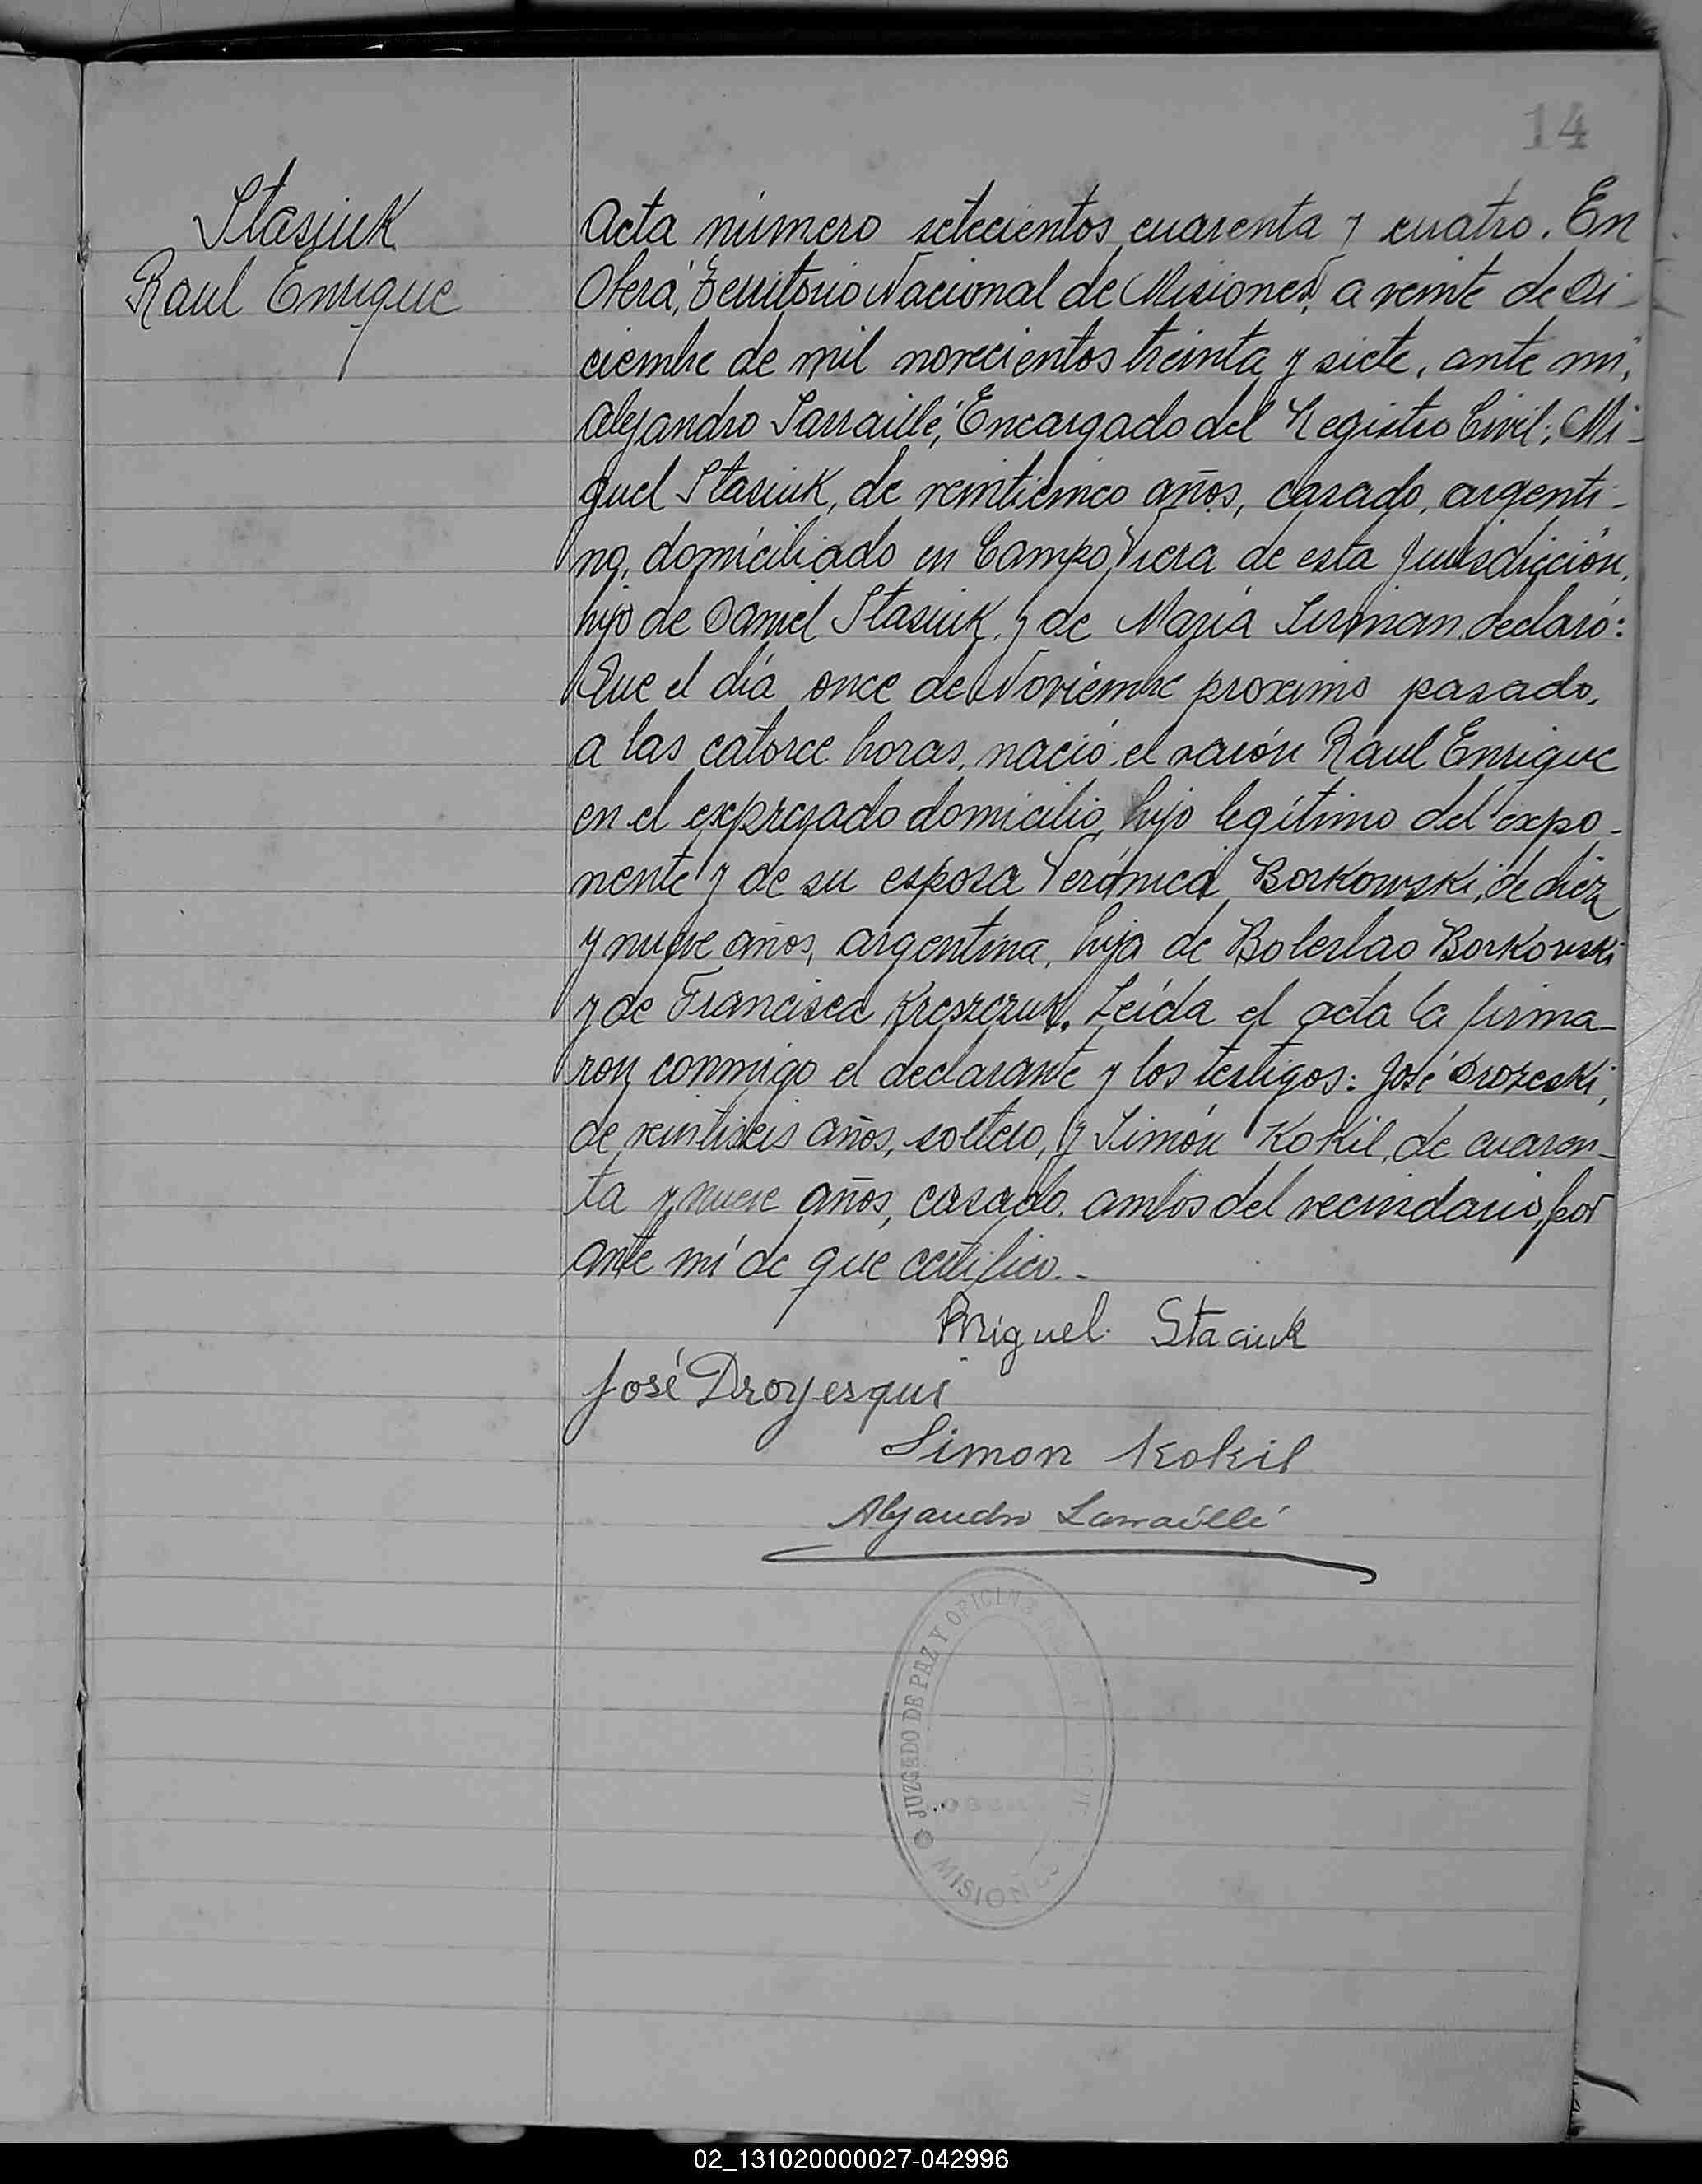 14
Stasiuk
Raul Enrique
Acta número setecientos cuarenta y cuatro. En
Oberá, Territorio Nacional de Misiones, a veinte de Di-
ciembre de mil novecientos treinta y siete, ante mi,
Alejandro Sarraillé, Encargado del Registro Civil; Mi-
guel Stasiuk, de veinticinco años, casado, argenti-
no, domiciliado en Campo Viera de esta Jurisdicción,
hijo de Daniel Stasiuk y de María declaró:
Que el día once de Noviembre proximo pasado,
a las catorce horas, nació el varón Raul Enrique
en el expresado domicilio, hijo legítimo del expo-
nente y de su esposa Verónica Borkowski, de diez
y nueve años, argentina, hija de Boleslao Borkowski
y de Francisca Kreszczuk. Leída el acta la firma-
ron conmigo el declarante y los testigos: José Drozeski,
de veintiseis años, soltero, y Simón Kokil, de cuaren-
ta y nueve años, casado, ambos del vecindario, por
ante mí de que certifico.-
Miguel Staciuk
José Droyesqui
Simon Kokil
Alejandro Sarraillé
JUZGADO DE PAZ Y OFICINA
MISIONES
02_131020000027-042996